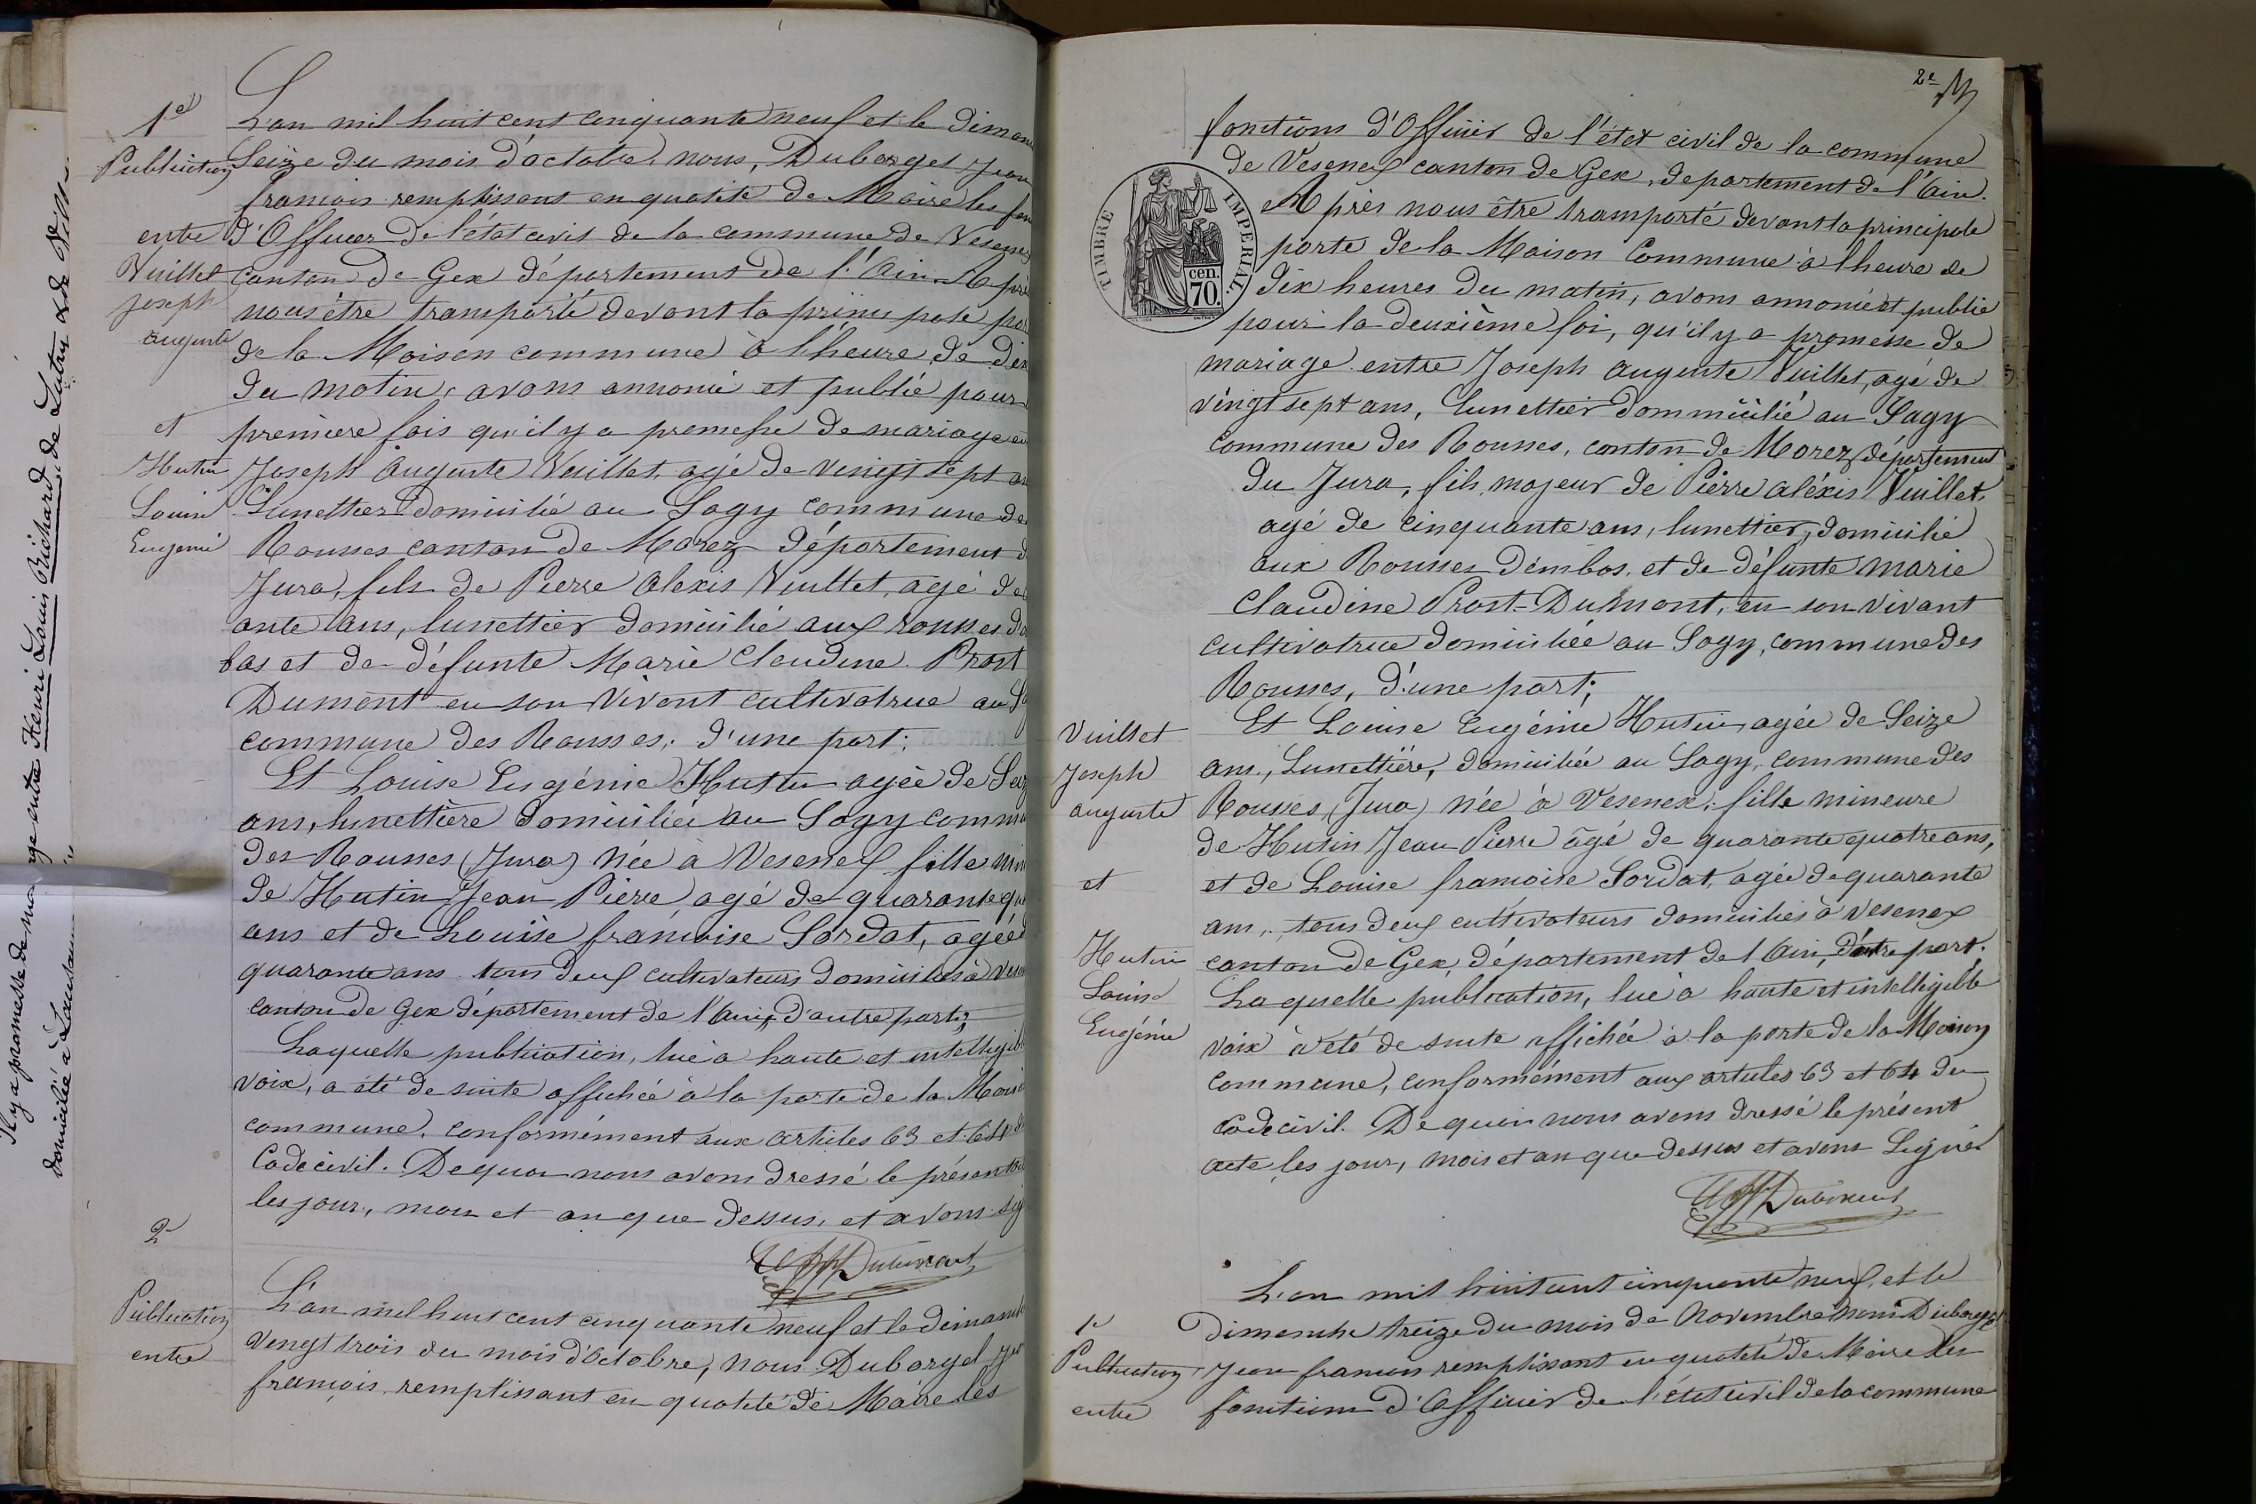 1e
Publication
entre
Vuillet
joseph
auguste
et
Hutin
Louise
Eugenie
L'an mil huit cent cinquante neuf et le diman
Seize du mois d'octobre, nous, Duborget Jean
francois remplissant en qualité de Maire les fon
d'Officier de l'état civil de la commune de Vesenex
canton de Gex département de l'Ain Aprè
nous être transporté devant la principale por
de la Maison commune à l'heure de dix
du matin, avons annoncé et publié pour
première fois qu'il y a promesse de mariage en
Joseph Auguste Vuillet, agé de vingt sept an
Lunettier domicilié au Sagy commune de
Rousses canton de Morez département d
Jura, fils de Pierre Alexis Vuillet, agé de
ante ans, lunettier domicilié aux rousses d'
bas et de défunte Marie Claudine Prost
Dumont en son vivant cultivatrice au S
commune des Rousses, d'une part;
Et Louise Eugénie Hutin agée de Sei
ans, lunettière domiciliée au Sagy comm
des Rousses (Jura) née à Vesenex fille min
de Hutin Jean Pierre, agé de quarante qu
ans et de Louise francoise Sordat, agée
quarante ans tous deux cultivateurs domiciliés à Vesen
canton de Gex département de l'Ain, d'autre part;
Laquelle publication, lue à haute et intelligibl
voix, a été de suite affichée à la porte de la Mais
commune, conformément aux articles 63 et 64 d
Code civil. De quoi nous avons dressé le présent
les jour, mois et an que dessus, et avons sig
2e
Publication
entre
L'an mil huit cent cinquante neuf et le dimanch
vingt trois du mois d'Octobre, nous Duborget Jea
françois remplissant en qualité de Maire les
Il y a promesse de mariage entre Henri Louis Richard de Lutry
domicilié à Lausanne
2e
fonctions d'Officier de l'état civil de la commune
de Vesenex canton de Gex, département de l'Ain.
Après nous être transporté devant la principale
porte de la Maison Commune à l'heure de
dix heures du matin, avons annoncé et publié
pour la deuxième foi, qu'il y a promesse de
mariage entre Joseph Auguste Vuillet, agé de
vingt sept ans, Lunettier domicilié au Sagy
commune des Rousses, canton de Morez, département
du Jura, fils majeur de Pierre aléxis Vuillet,
agé de cinquante ans, lunettier, domicilié
aux Rousses d'embas, et de défunte marie
Claudine Prost-Dumont, en son vivant
cultivatrice domiciliée au Sagy, commune des
Rousses, d'une part;
TIMBRE IMPERIAL.
cen.
70.
Vuillet
Joseph
auguste
et
Hutin
Louise
Eugénie
Et Louise Eugénie Hutin, agée de Seize
ans, Lunettière, domiciliée au Sagy, commune des
Rousses (Jura) née à Vesenex, fille mineure
de Hutin Jean Pierre âgé de quarante quatre ans,
et de Louise francoise Sordat, agée de quarante
ans, tous deux cultivateurs domiciliés à Vesenex
canton de Gex, département de l'Ain, d'autre part.
Laquelle publication, lue à haute et intelligible
voix à été de suite affichée à la porte de la Maison
commune, conformément aux articles 63 et 64 du
Code civil. De quoi nous avons dressé le présent
acte, les jour, mois et an que dessus et avons Signé
1e
Publication
entre
L'an mil huit cent cinquante neuf, et le
Dimanche treize du mois de Novembre nous Duborget
Jean francois remplissant en qualité de Maire les
fonctions d'Officier de l'état civil de la commune